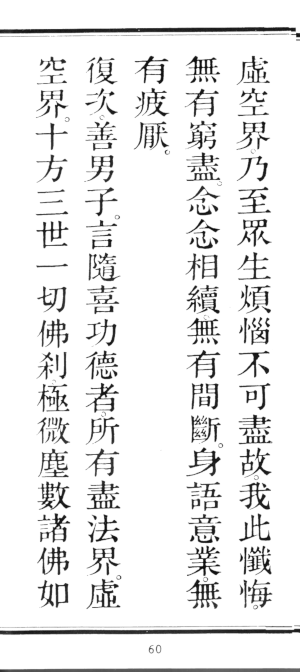 虛空界。乃至眾生煩惱不可盡故。我此懺悔。
無有窮盡。念念相續。無有間斷。身語意業。無
有疲厭。
復次。善男子。言隨喜功德者。所有盡法界。虛
空界。十方三世一切佛刹。極微塵數諸佛如
60